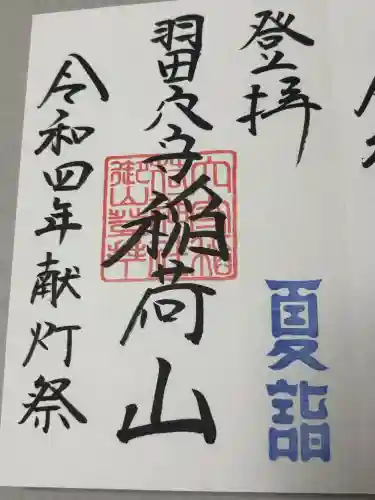 登拝
羽田穴守稲荷山
令和四年献灯祭
夏詣